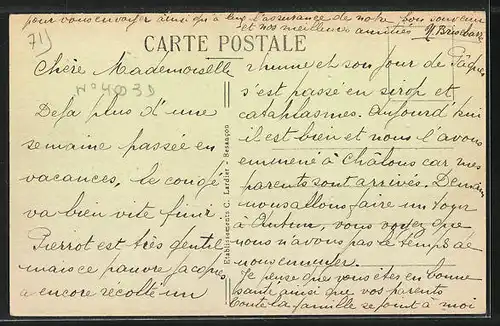 pour vous envoyer ainsi qu'à eux l'assurance de notre bon souvenir
et nos meilleures amitiés
71)
CARTE POSTALE
N° 4003D
Chère Mademoiselle
Déja plus d'une
semaine passée en
vacances, le congé
va bien vite finir.
Pierrot est très gentil
mais ce pauvre Jacques
a encore récolté un
Etablissements C. Lardier - Besançon
rhume et son jour de Pâques
s'est passé en sirop et
cataplasmes. Aujourd'hui
il est bien et nous l'avons
emmené à Châlons car mes
parents sont arrivés. Demain
nous allons faire un tour
à Autun, vous voyez que
nous n'avons pas le temps de
nous ennuyer.
Je pense que vous êtes en bonne
santé ainsi que vos parents
toute la famille se joint à moi